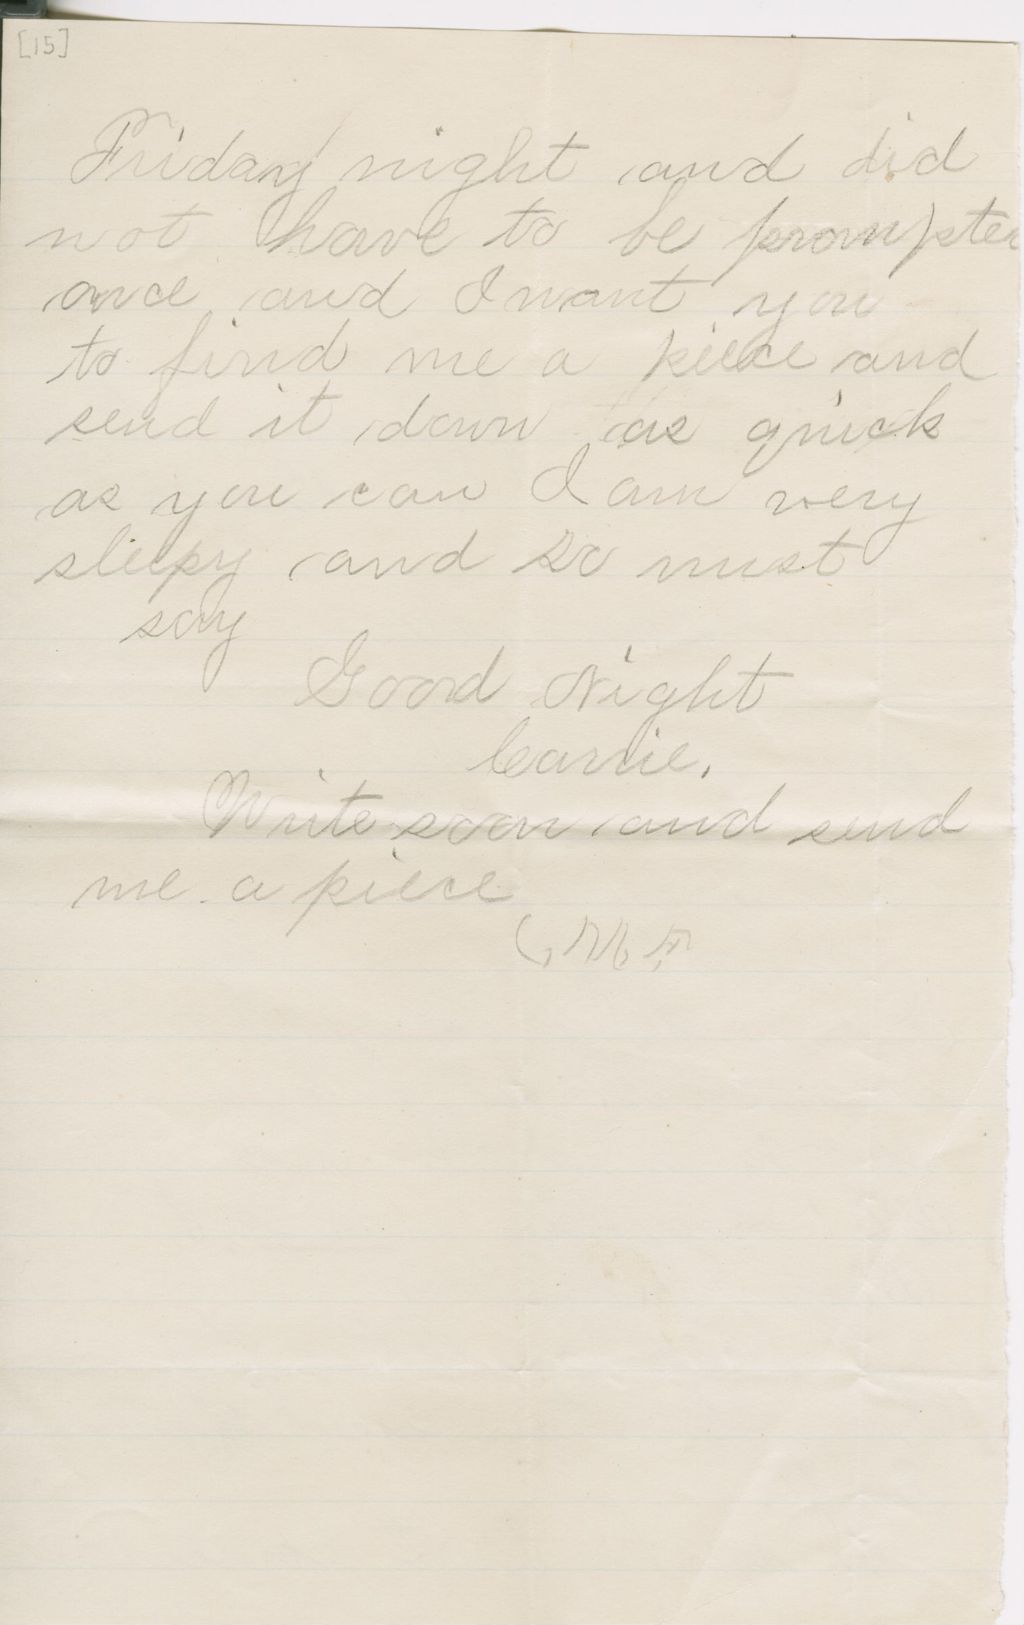 [15]
Friday night and did
not have to be prompted
once and I want you
to find me a piece and
send it down as quick
as you can I am very
sleepy and so must
say
Good Night
Carrie.
Write soon and send
me a piece
C, M, F,